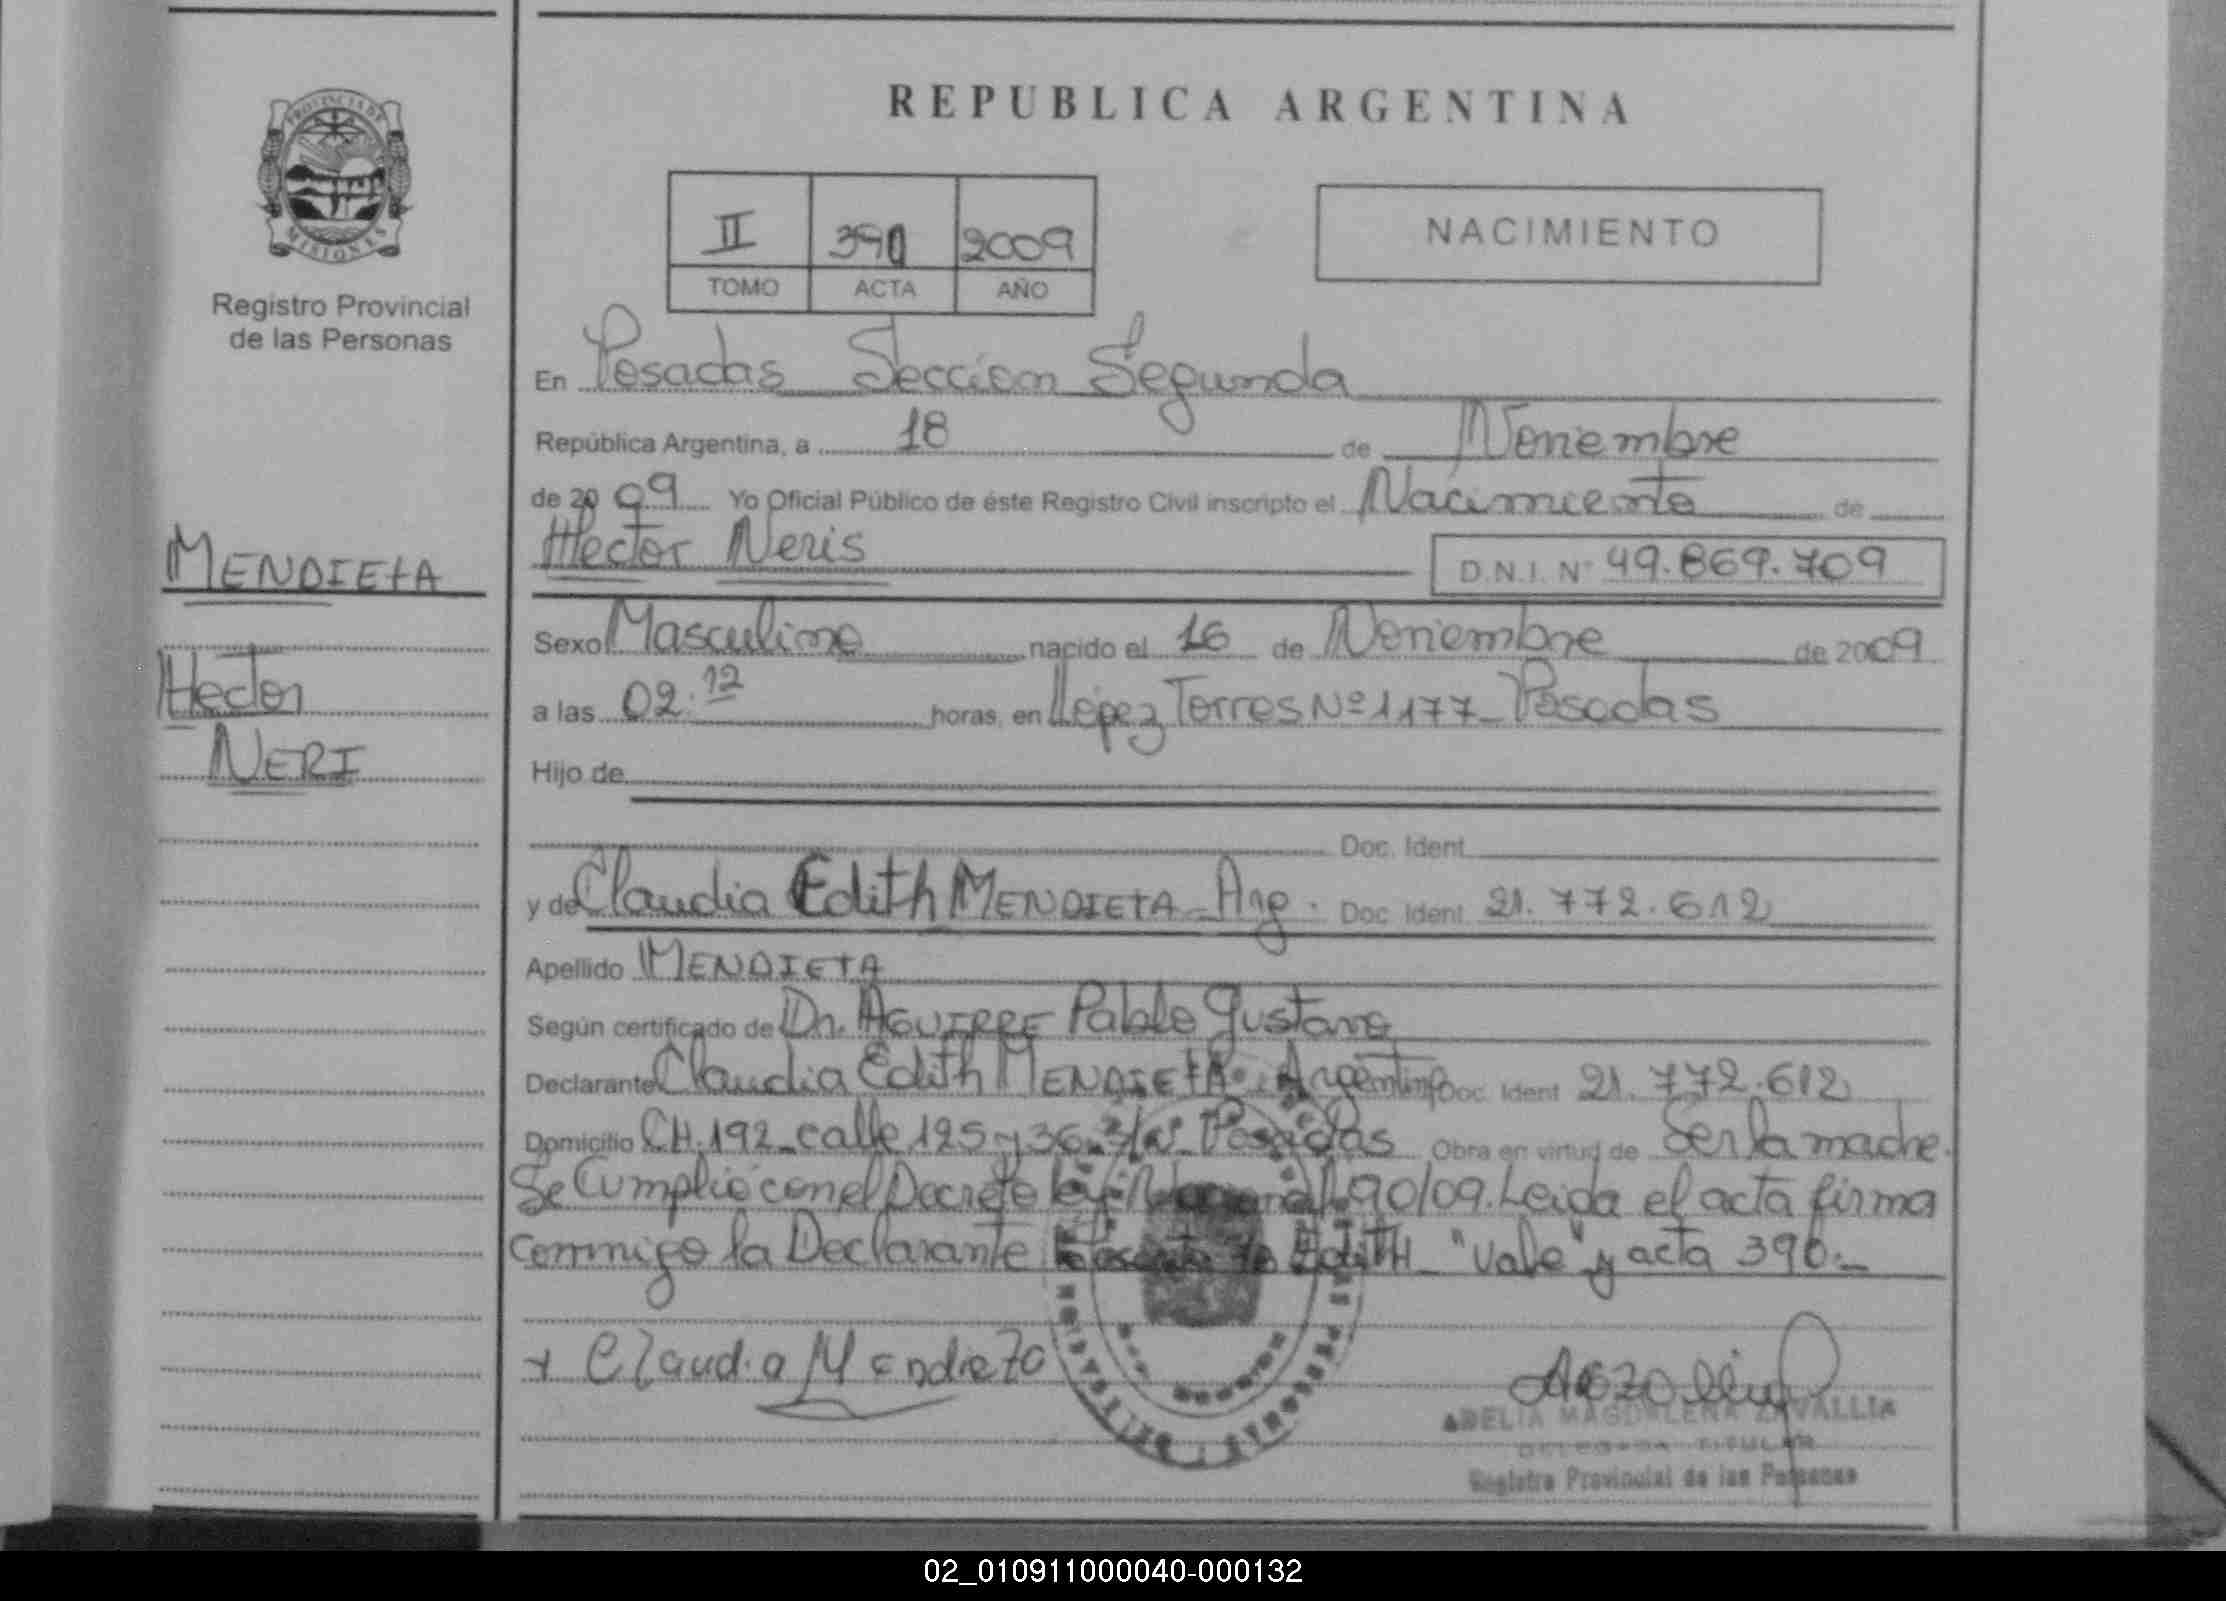 REPUBLICA ARGENTINA
PROVINCIA DE
MISIONES
Registro Provincial
de las Personas
II 390 2009
TOMO ACTA AÑO
NACIMIENTO
En Posadas Sección Segunda
República Argentina, a 18 de Noviembre
de 2009 Yo Oficial Público de éste Registro Civil inscripto el Nacimiento de
Hector Neris D.N.I. Nº 49.869.709
MENDIETA
Hector
NERI
Sexo Masculino nacido el 16 de Noviembre de 2009
a las 02.12 horas, en López Torres Nº 1177_Posadas
Hijo de
Doc. Ident.
y de Claudia Edith MENDIETA_Arg. Doc. Ident. 21.772.612
Apellido MENDIETA
Según certificado de Dr. AGUIRRE Pablo Gustavo
Declarante Claudia Edith MENDIETA. Argentina Doc. Ident 21.772.612
Domicilio CH.192_calle 125 y 36_ Posadas Obra en virtud de Ser la madre.
Se Cumplió con el Decreto 90/09. Leida el acta firma
conmigo la Declarante EdiTH_"Vale" y acta 390._
+ Claudia Mendieta
ADELIA MAGDALENA ZAVALLIA
DELEGADA TITULAR
Registro Provincial de las Personas
02_010911000040-000132